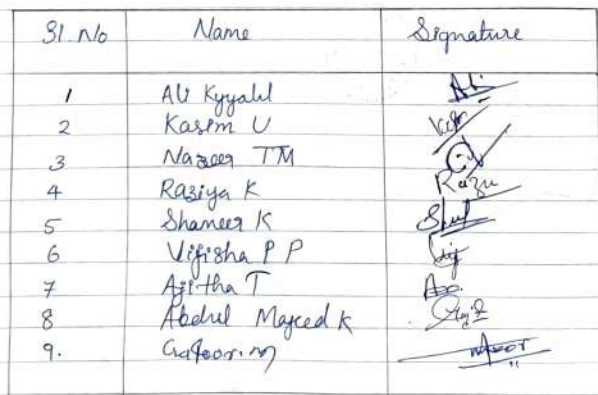 Sl. No Name Signature
1 Ali Kyyalil
2 Kasim U
3 Nazeer TM
4 Raziya K
5 Shameer K
6 Vijisha P P
7 Ajitha T
8 Abdul Majeed K
9. Gafoor. M